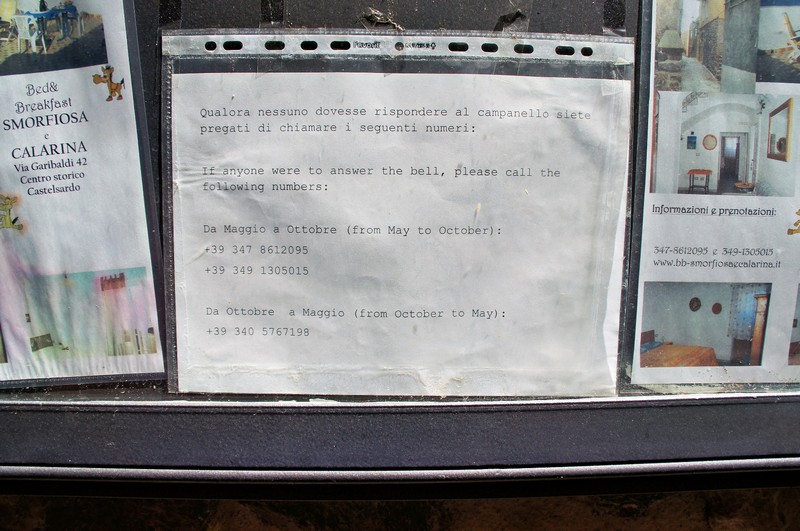 Bed&
Breakfast
SMORFIOSA
e
CALARINA
Via Garibaldi 42
Centro storico
Castelsardo
Favorit
Qualora nessuno dovesse rispondere al campanello siete
pregati di chiamare i seguenti numeri:
If anyone were to answer the bell, please call the
following numbers:
Da Maggio a Ottobre (from May to October):
+39 347 8612095
+39 349 1305015
Da Ottobre a Maggio (from October to May):
+39 340 5767198
Informazioni e prenotazioni:
347-8612095 e 349-1305015
www.bb-smorfiosaecalarina.it